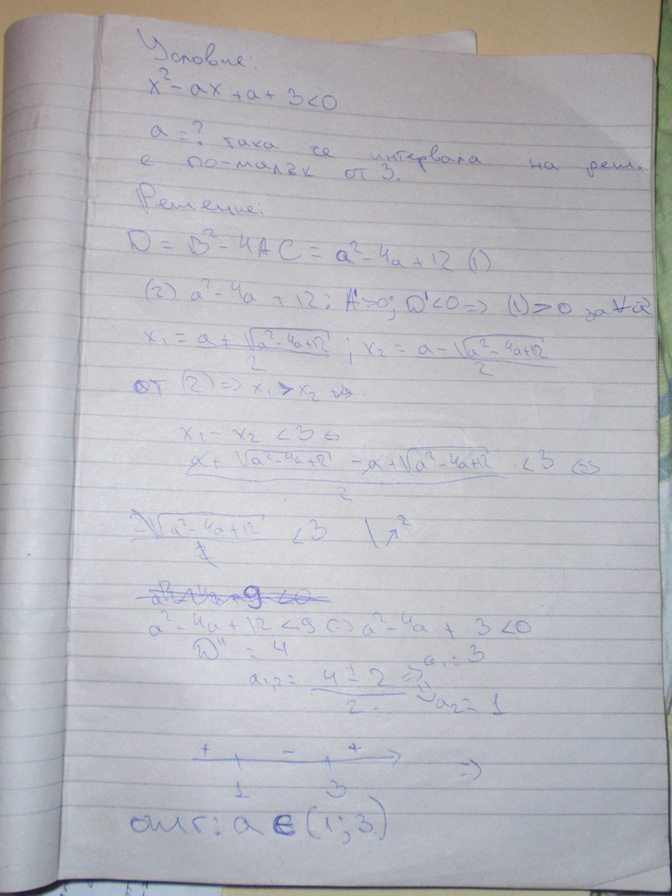 Условие:
x² - ax + a + 3 < 0
a = ? така че интервала на реш.
е по-малък от 3.
Решение:
D = B² - 4AC = a² - 4a + 12 (1)
(2) a² - 4a + 12; A'>0; D'<0 => (1) > 0 за ∀ a
x₁ = a + √(a² - 4a + 12) / 2 ; x₂ = a - √(a² - 4a + 12) / 2
от (2) => x₁ > x₂ =>
x₁ - x₂ < 3 <=>
a + √(a² - 4a + 12) - a + √(a² - 4a + 12) / 2 < 3 <=>
2√(a² - 4a + 12) / 2 < 3 | ↗²
a² - 4a + 12 < 9 <=> a² - 4a + 3 < 0
D'' = 4
a₁,₂ = 4 ± 2 / 2 => a₁ = 3
a₂ = 1
+ - + =>
1 3
отг: a ∈ (1; 3)